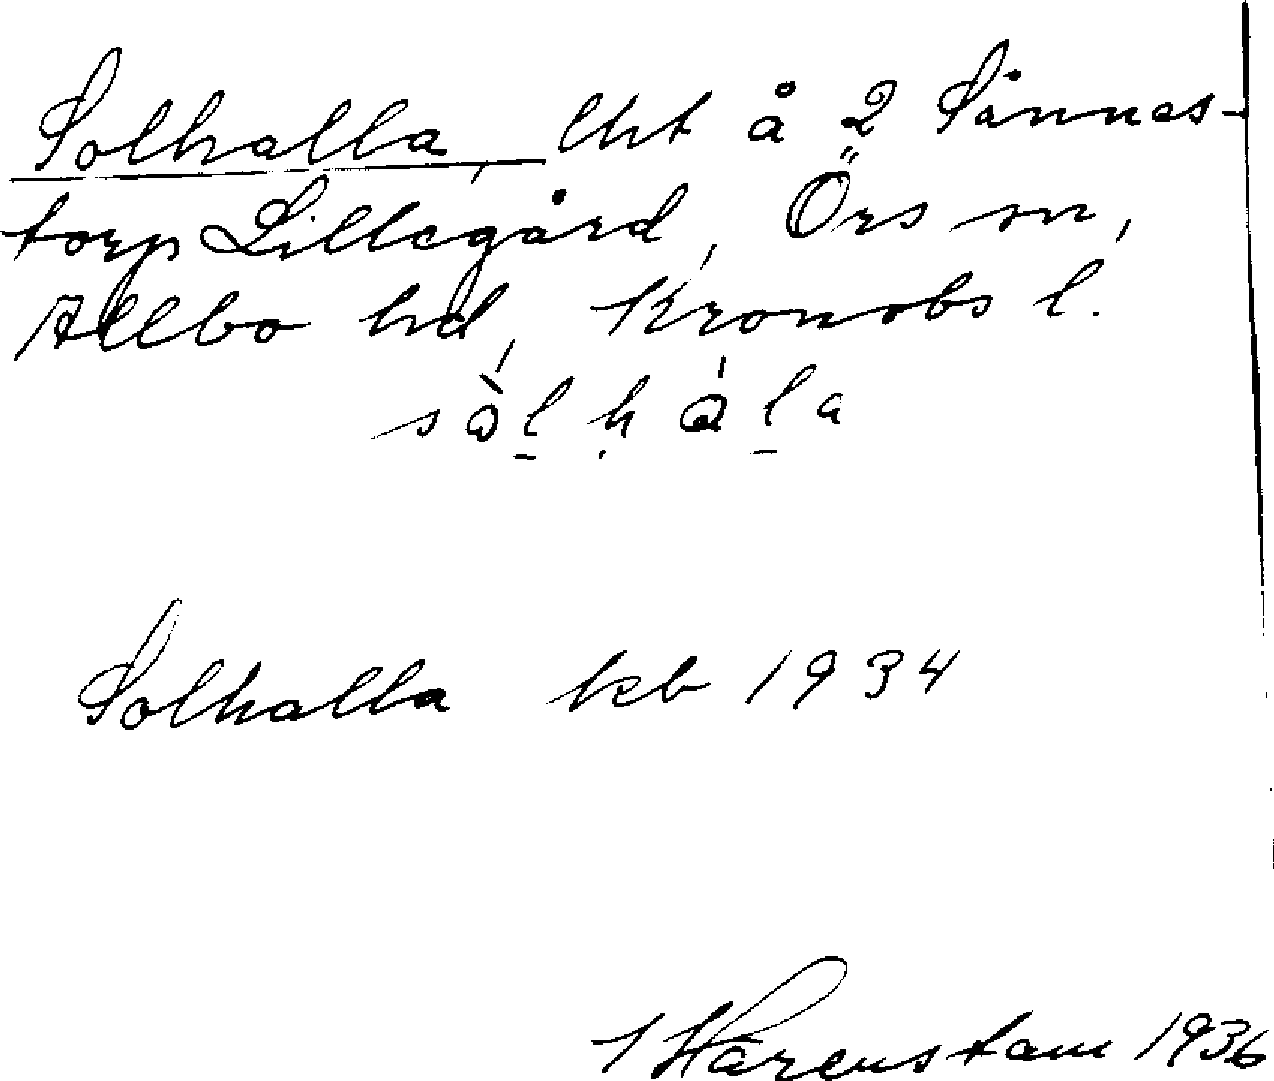 Solhalla, lht å 2 Sånnas-
torp Lillegård, Örs sn,
Allbo hd, Kronobs l.
sòlḥála
Solhalla kb 1934
Hårenstam 1936